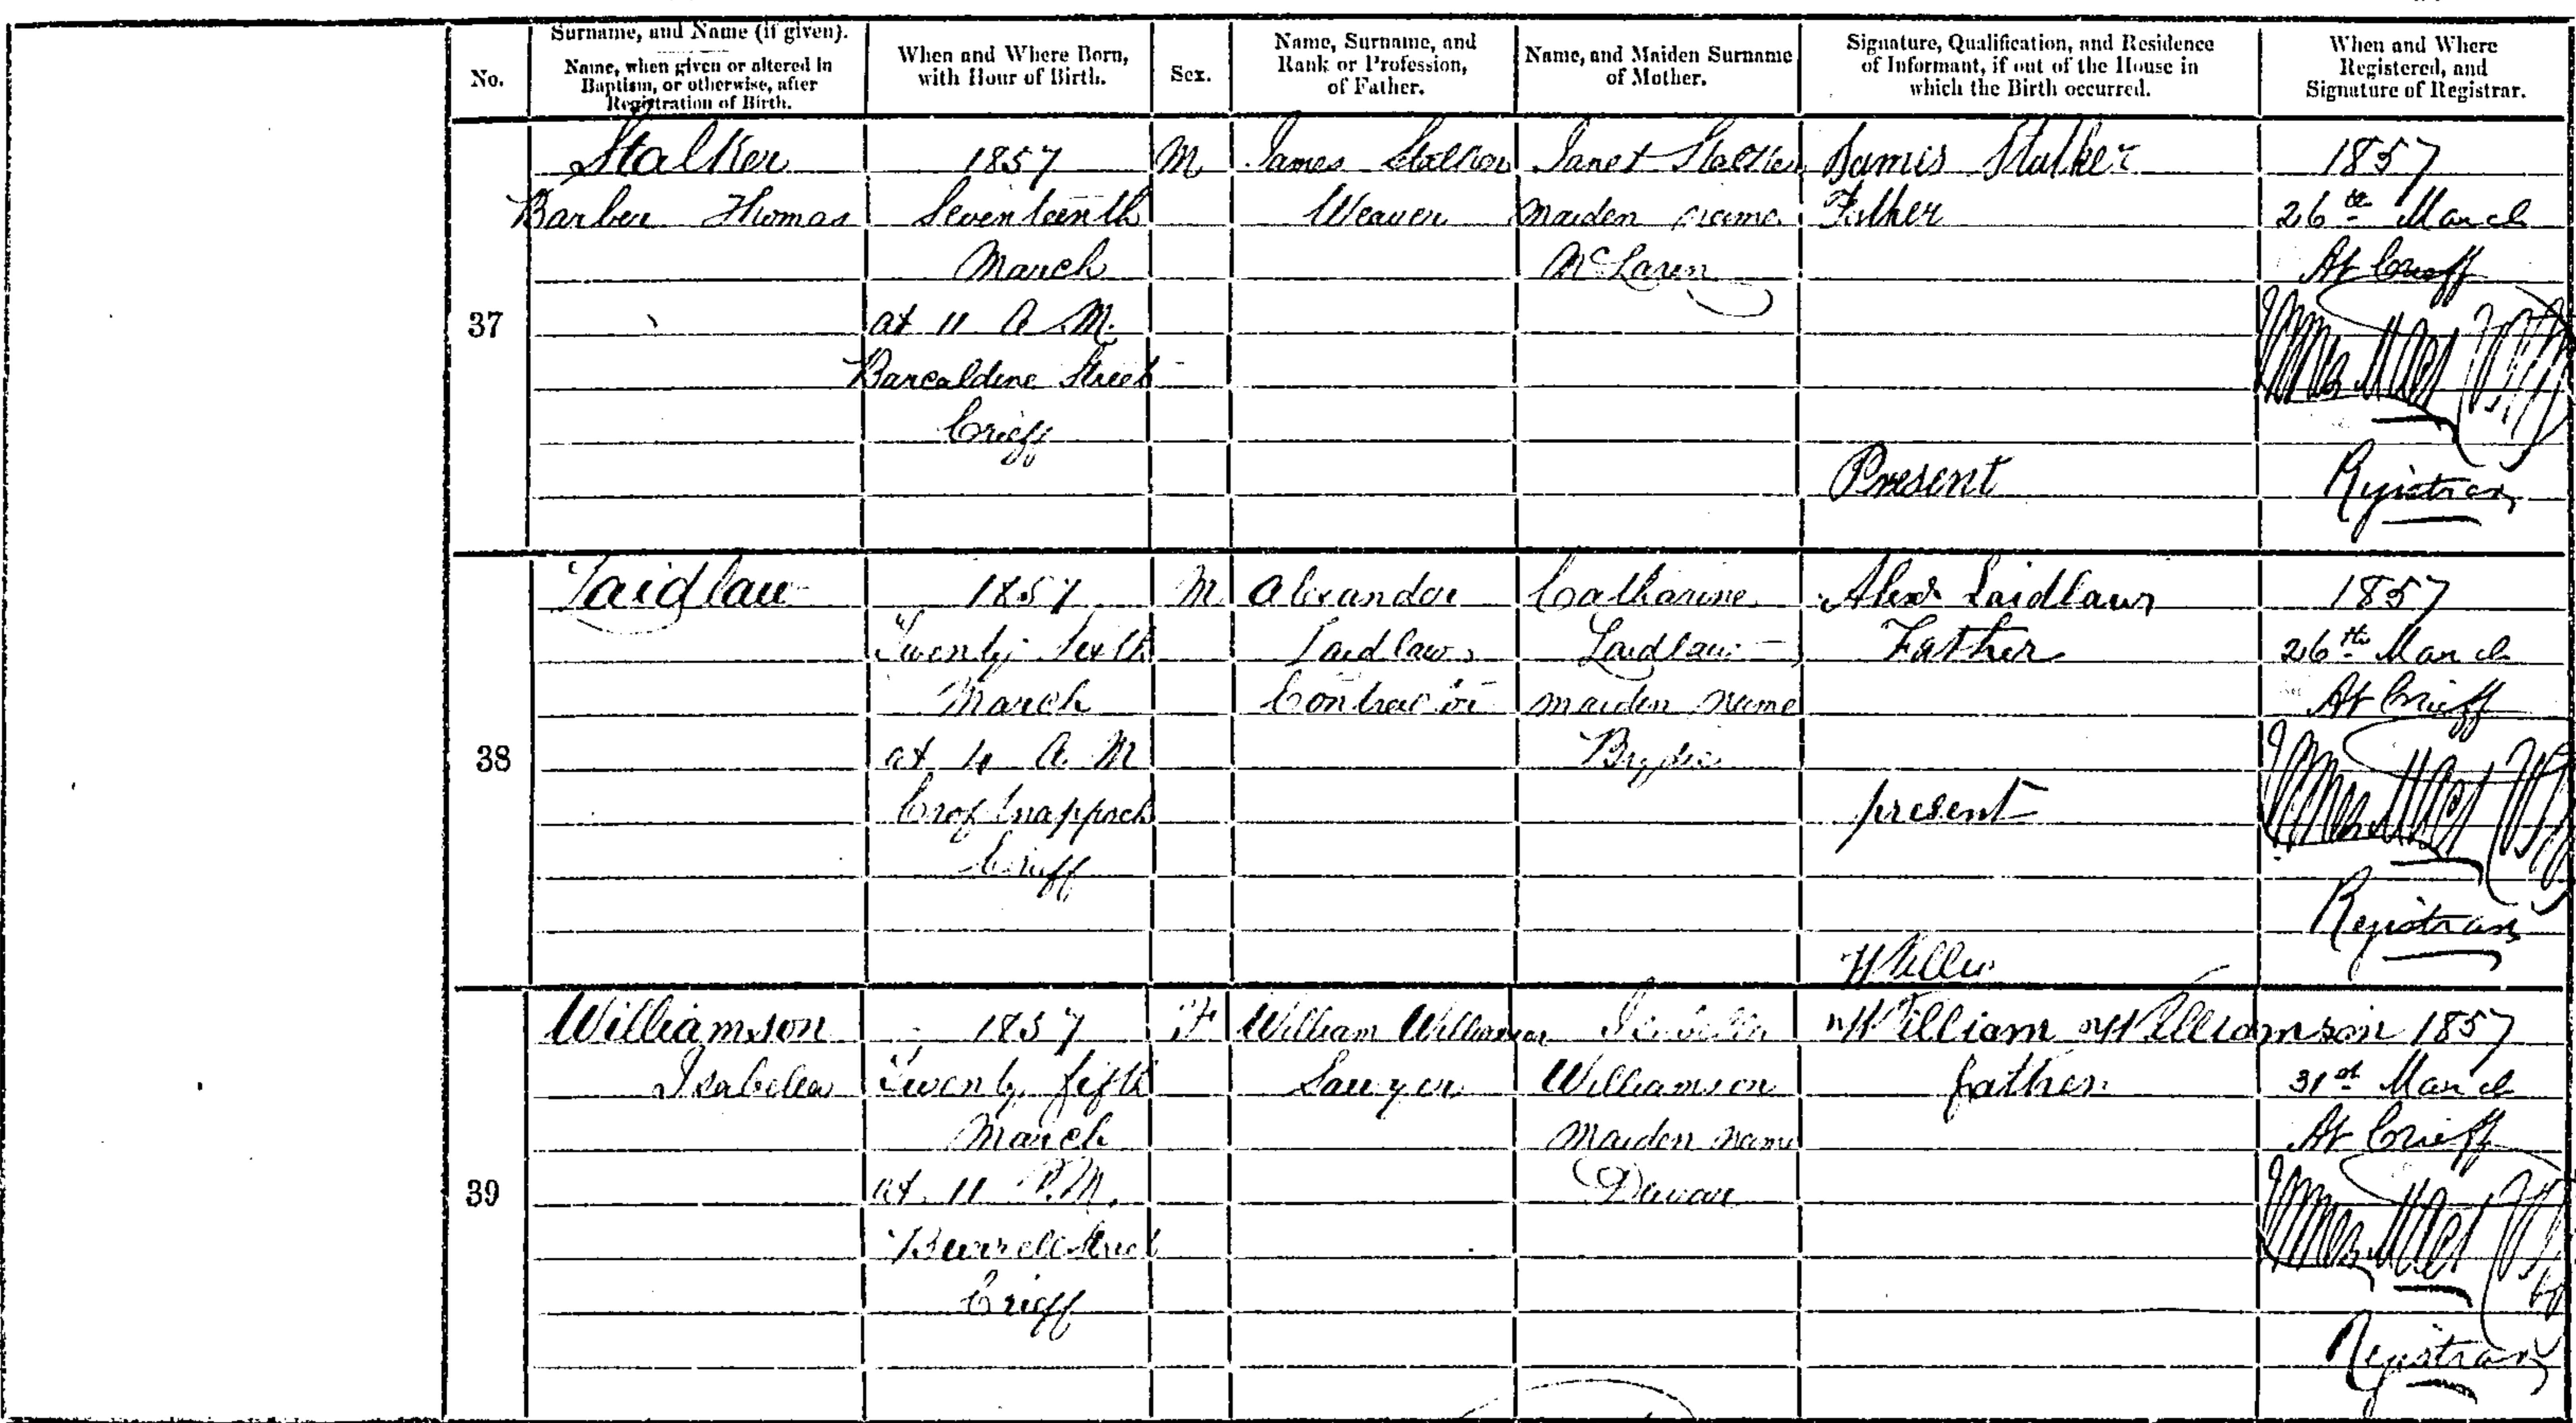 No.
Surname, and Name (if given).
Name, when given or altered in
Baptism, or otherwise, after
Registration of Birth.
When and Where Born,
with Hour of Birth.
Sex.
Name, Surname, and
Rank or Profession,
of Father.
Name, and Maiden Surname
of Mother.
Signature, Qualification, and Residence
of Informant, if out of the House in
which the Birth occurred.
When and Where
Registered, and
Signature of Registrar.
37
Stalker
Thomas
1857
Seventeenth
March
at 11 A.M.
Barcaldine Street
Crieff
M
James Stalker
Weaver
Janet Stalker
maiden name
McLaren
James Stalker
Father
Present
1857
26th March
At Crieff
Registrar
38
Laidlaw
1857
Twenty Sixth
March
at 4 A M
Crieff
M
Alexander
Laidlaw
Contractor
Catharine
Laidlaw
maiden name
Brydie
Alexr Laidlaw
Father
present
1857
26th March
At Crieff
Registrar
39
Williamson
Isabella
1857
Twenty fifth
March
at 11 P.M.
Burrell Street
Crieff
F
William Williamson
Sawyer
Isabella
Williamson
maiden name
Dewar
Willi
William Williamson
father
1857
31st March
At Crieff
Registrar